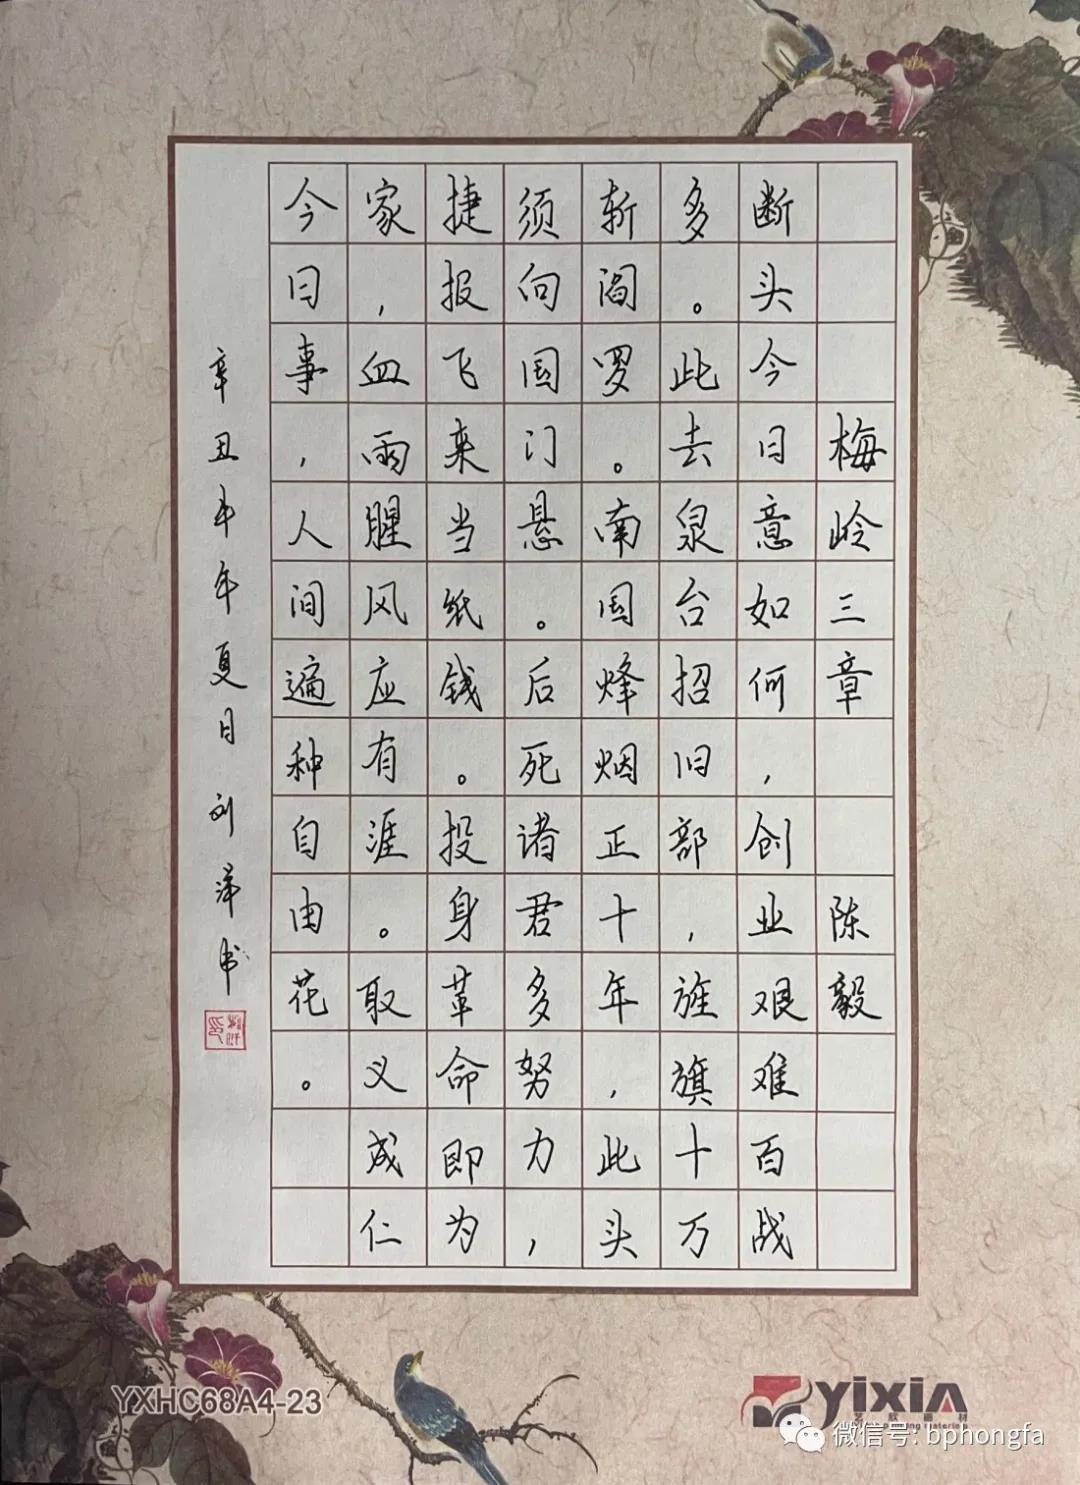 梅岭三章 陈毅
断头今日意如何，创业艰难百战
多。此去泉台招旧部，旌旗十万
斩阎罗。南国烽烟正十年，此头
须向国门悬。后死诸君多努力，
捷报飞来当纸钱。投身革命即为
家，血雨腥风应有涯。取义成仁
今日事，人间遍种自由花。
辛丑牛年夏日刘泽书
YXHC68A4-23
YIXIA
微信号: bphongfa